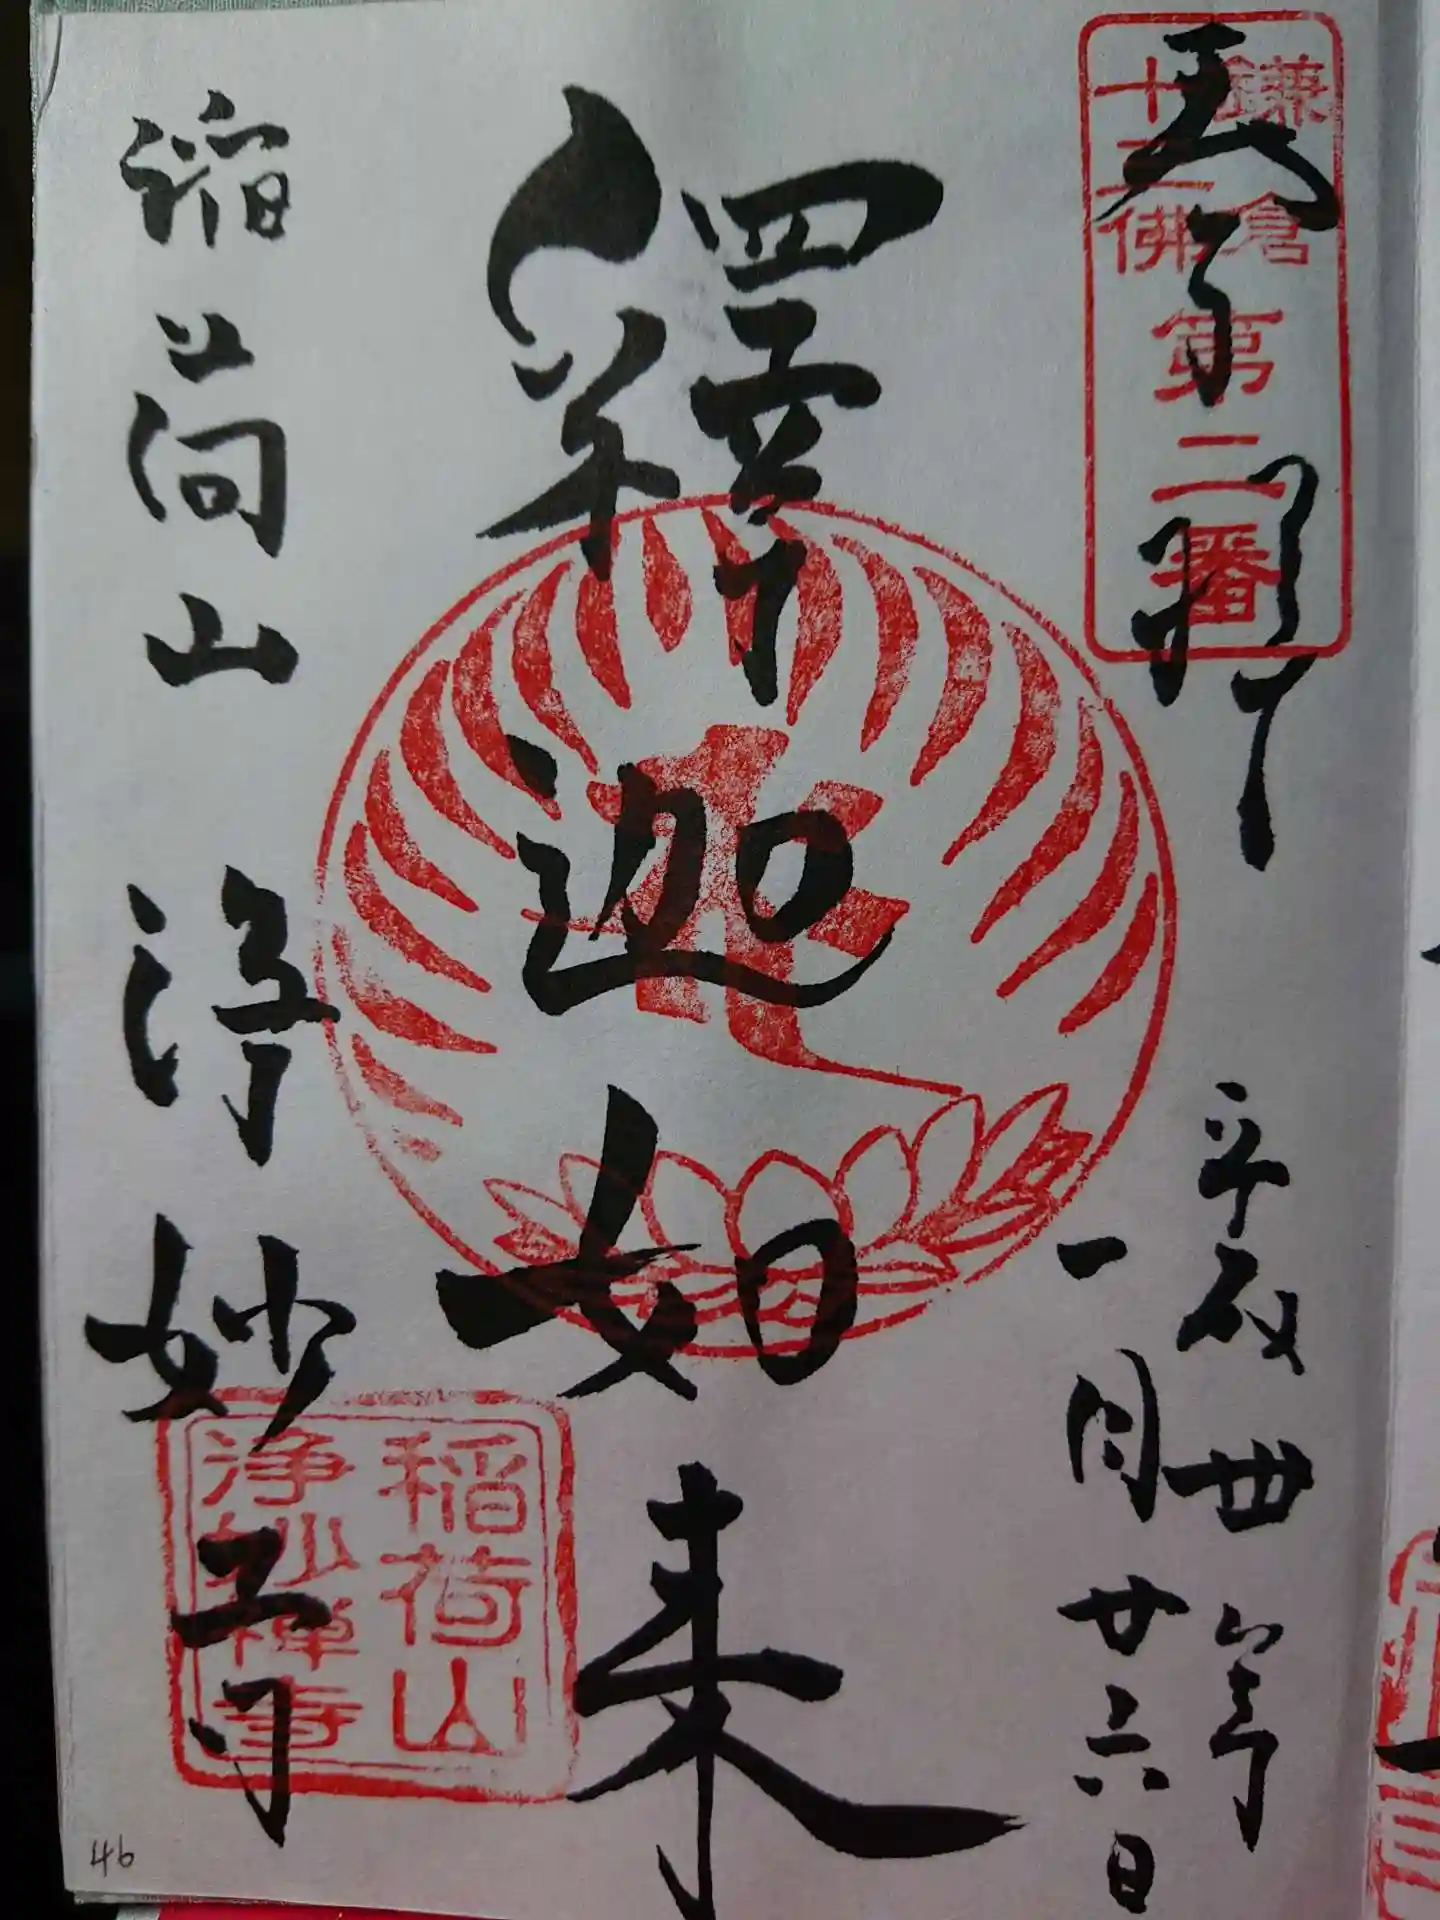 鎌倉
十三佛
第二番
平成丗年
一月廿六日
釋迦如来
稲荷山 浄妙寺
稲荷山
浄妙禅寺
46